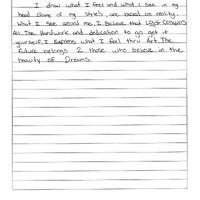 I draw what I feel and what I see in my
head. Some of my styles, are based on reality.
What I see around me. I Believe that Love Conquers
All. The Hardwork and dedication to go get it
yourself, I Express what I feel thru Art. The
future belongs 2 those who believe in the
beauty of Dreams.